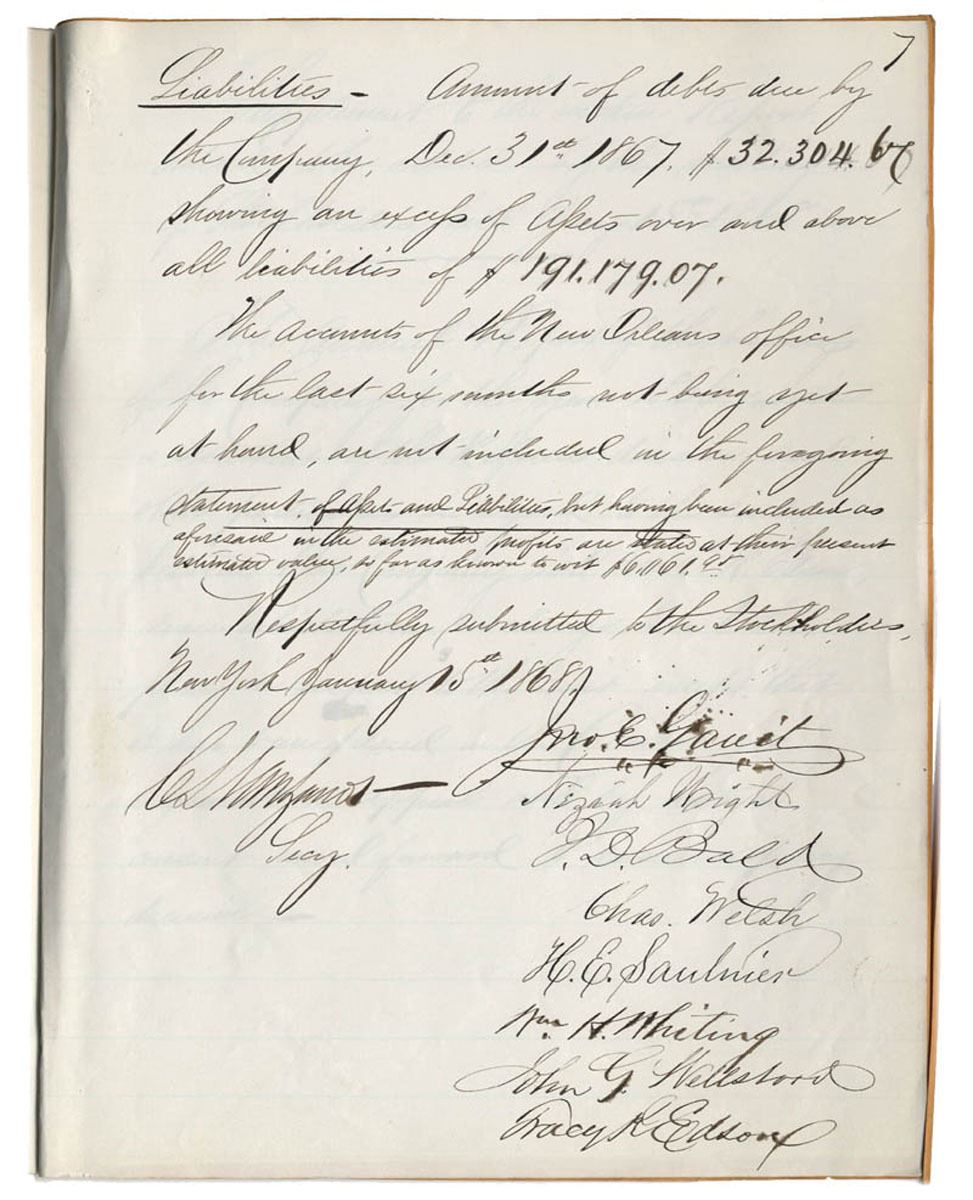 7
Liabilities - Amount of debts due by
the Company, Dec. 31st 1867, $32.304.67
showing an excess of Assets over and above
all liabilities of $191.179.07.
The accounts of the New Orleans office
for the last six months not being yet
at hand, are not included in the foregoing
statement, of Assets and Liabilities, but having been included as
aforesaid in the estimated profits are stated at their present
estimated value, so far as known to wit $6,061.95
Respectfully submitted to the Stockholders,
New York January 15th 1868
Jno. E. Gavit
Secy.
Neziah Wright
J. D. Bald
Chas. Welsh
H. E. Saulnier
Wm. H. Whiting
John G. Wellstood
Tracy R. Edson